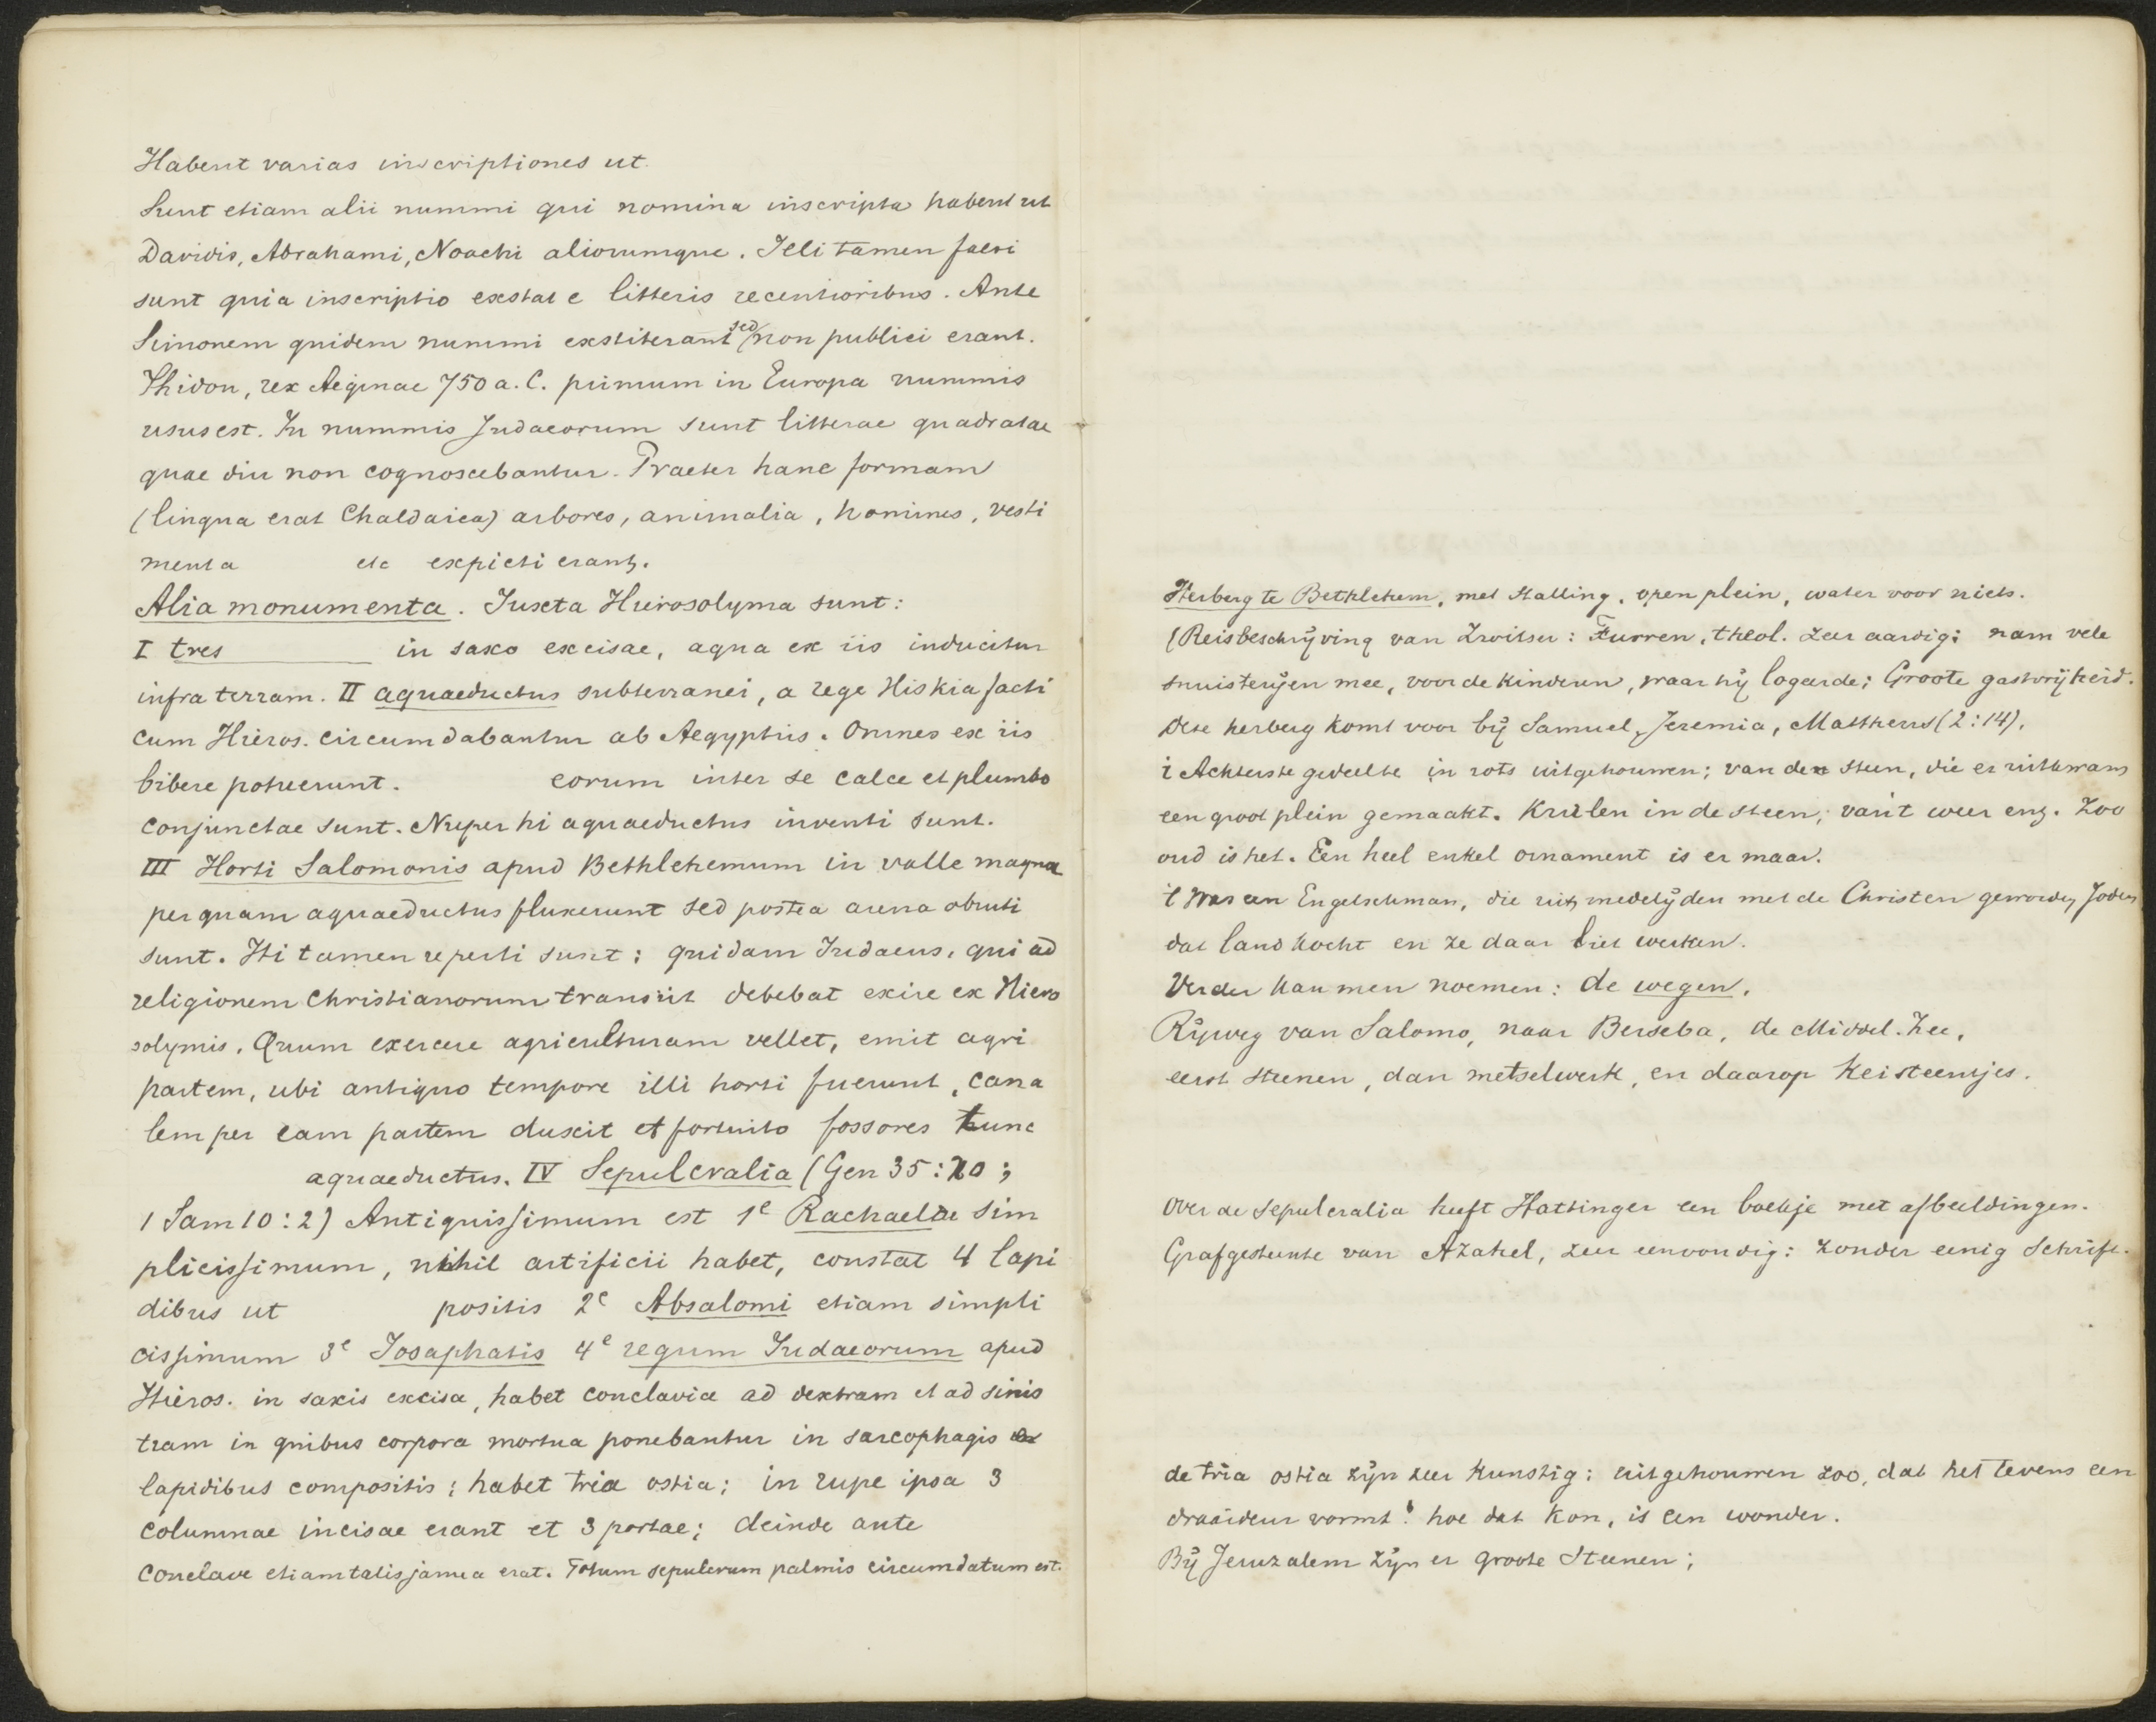 Habent varias inscriptiones ut
Sunt etiam alii nummi qui nomina inscripta habent ut
Davidis, Abrahami, Noachi aliorumque. Illi tamen falsi
sunt quia inscriptio exstat e litteris recentioribus. Ante
Simonem quidem nummi exstiterant sed non publici erant.
Phidon, rex Aeginae 750 a. C. primum in Europa nummis
usus est. In nummis Judaeorum sunt litterae quadratae
quae diu non cognoscebantur. Praeter hanc formam
(lingua erat Chaldaica) arbores, animalia, homines, vesti
menta etc expicti erant.
Alia monumenta. Iuxta Hierosolyma sunt:
I tres in saxo excisae, aqua ex iis inducitur
infra terram. II aquaeductus subterranei, a rege Hiskia facti
cum Hieros. circumdabantur ab Aegyptiis. Omnes ex iis
bibere potuerunt. eorum inter se calce et plumbo
conjunctae sunt. Nuper hi aquaeductus inventi sunt.
III Horti Salomonis apud Bethlehemum in valle magna
per quam aquaeductus fluxerunt sed postea arena obruti
sunt. Hi tamen reperti sunt: quidam Iudaeus, qui ad
religionem Christianorum transiit debebat exire ex Hiero
solymis. Quum exercere agriculturam vellet, emit agri
partem, ubi antiquo tempore illi horti fuerunt, cana
lem per eam partem duxit et fortuito fossores tunc
aquaeductus. IV Sepulcralia (Gen 35:20;
1 Sam 10:2) Antiquissimum est 1e Rachaelae sim
plicissimum, nihil artificii habet, constat 4 lapi
dibus ut positis 2e Absalomi etiam simpli
cissimum 3e Iosaphatis 4e regum Iudaeorum apud
Hieros. in saxis excisa, habet conclavia ad dextram et ad sinis
tram in quibus corpora mortua ponebantur in sarcophagis ex
lapidibus compositis; habet tria ostia; in rupe ipsa 3
columnae incisae erant et 3 portae; deinde ante
conclave etiam talis janua erat. Totum sepulcrum palmis circumdatum est.
Herberg te Bethlehem, met stalling, open plein, water voor niets.
(Reisbeschrijving van Zwitser: Furren, theol. zeer aardig; nam vele
snuisterijen mee, voor de kinderen, waar hij logeerde; Groote gastvrijheid.
Deze herberg komt voor bij Samuel, Jeremia, Mattheus (2:14).
i Achterste gedeelte in rots uitgehouwen; van den steen, die er uitkwam
een groot plein gemaakt. Krullen in de steen; van't weer enz. Zoo
oud is het. Een heel enkel ornament is er maar.
't Was een Engelschman, die uit medelijden met de Christen geworden Joden
dat land kocht en ze daar liet werken.
Verder kan men noemen: de wegen.
Rijweg van Salomo, naar Berseba, de Middel. Zee,
eerst steenen, dan metselwerk, en daarop keisteentjes.
Over de sepulcralia heeft Hattinger een boekje met afbeeldingen.
Grafgesteente van Azahel, zeer eenvoudig: zonder eenig schrift.
de tria ostia zijn zeer kunstig: uitgehouwen zoo, dat het tevens een
draaideur vormt! hoe dat kon, is een wonder.
Bij Jeruzalem zijn er groote steenen;